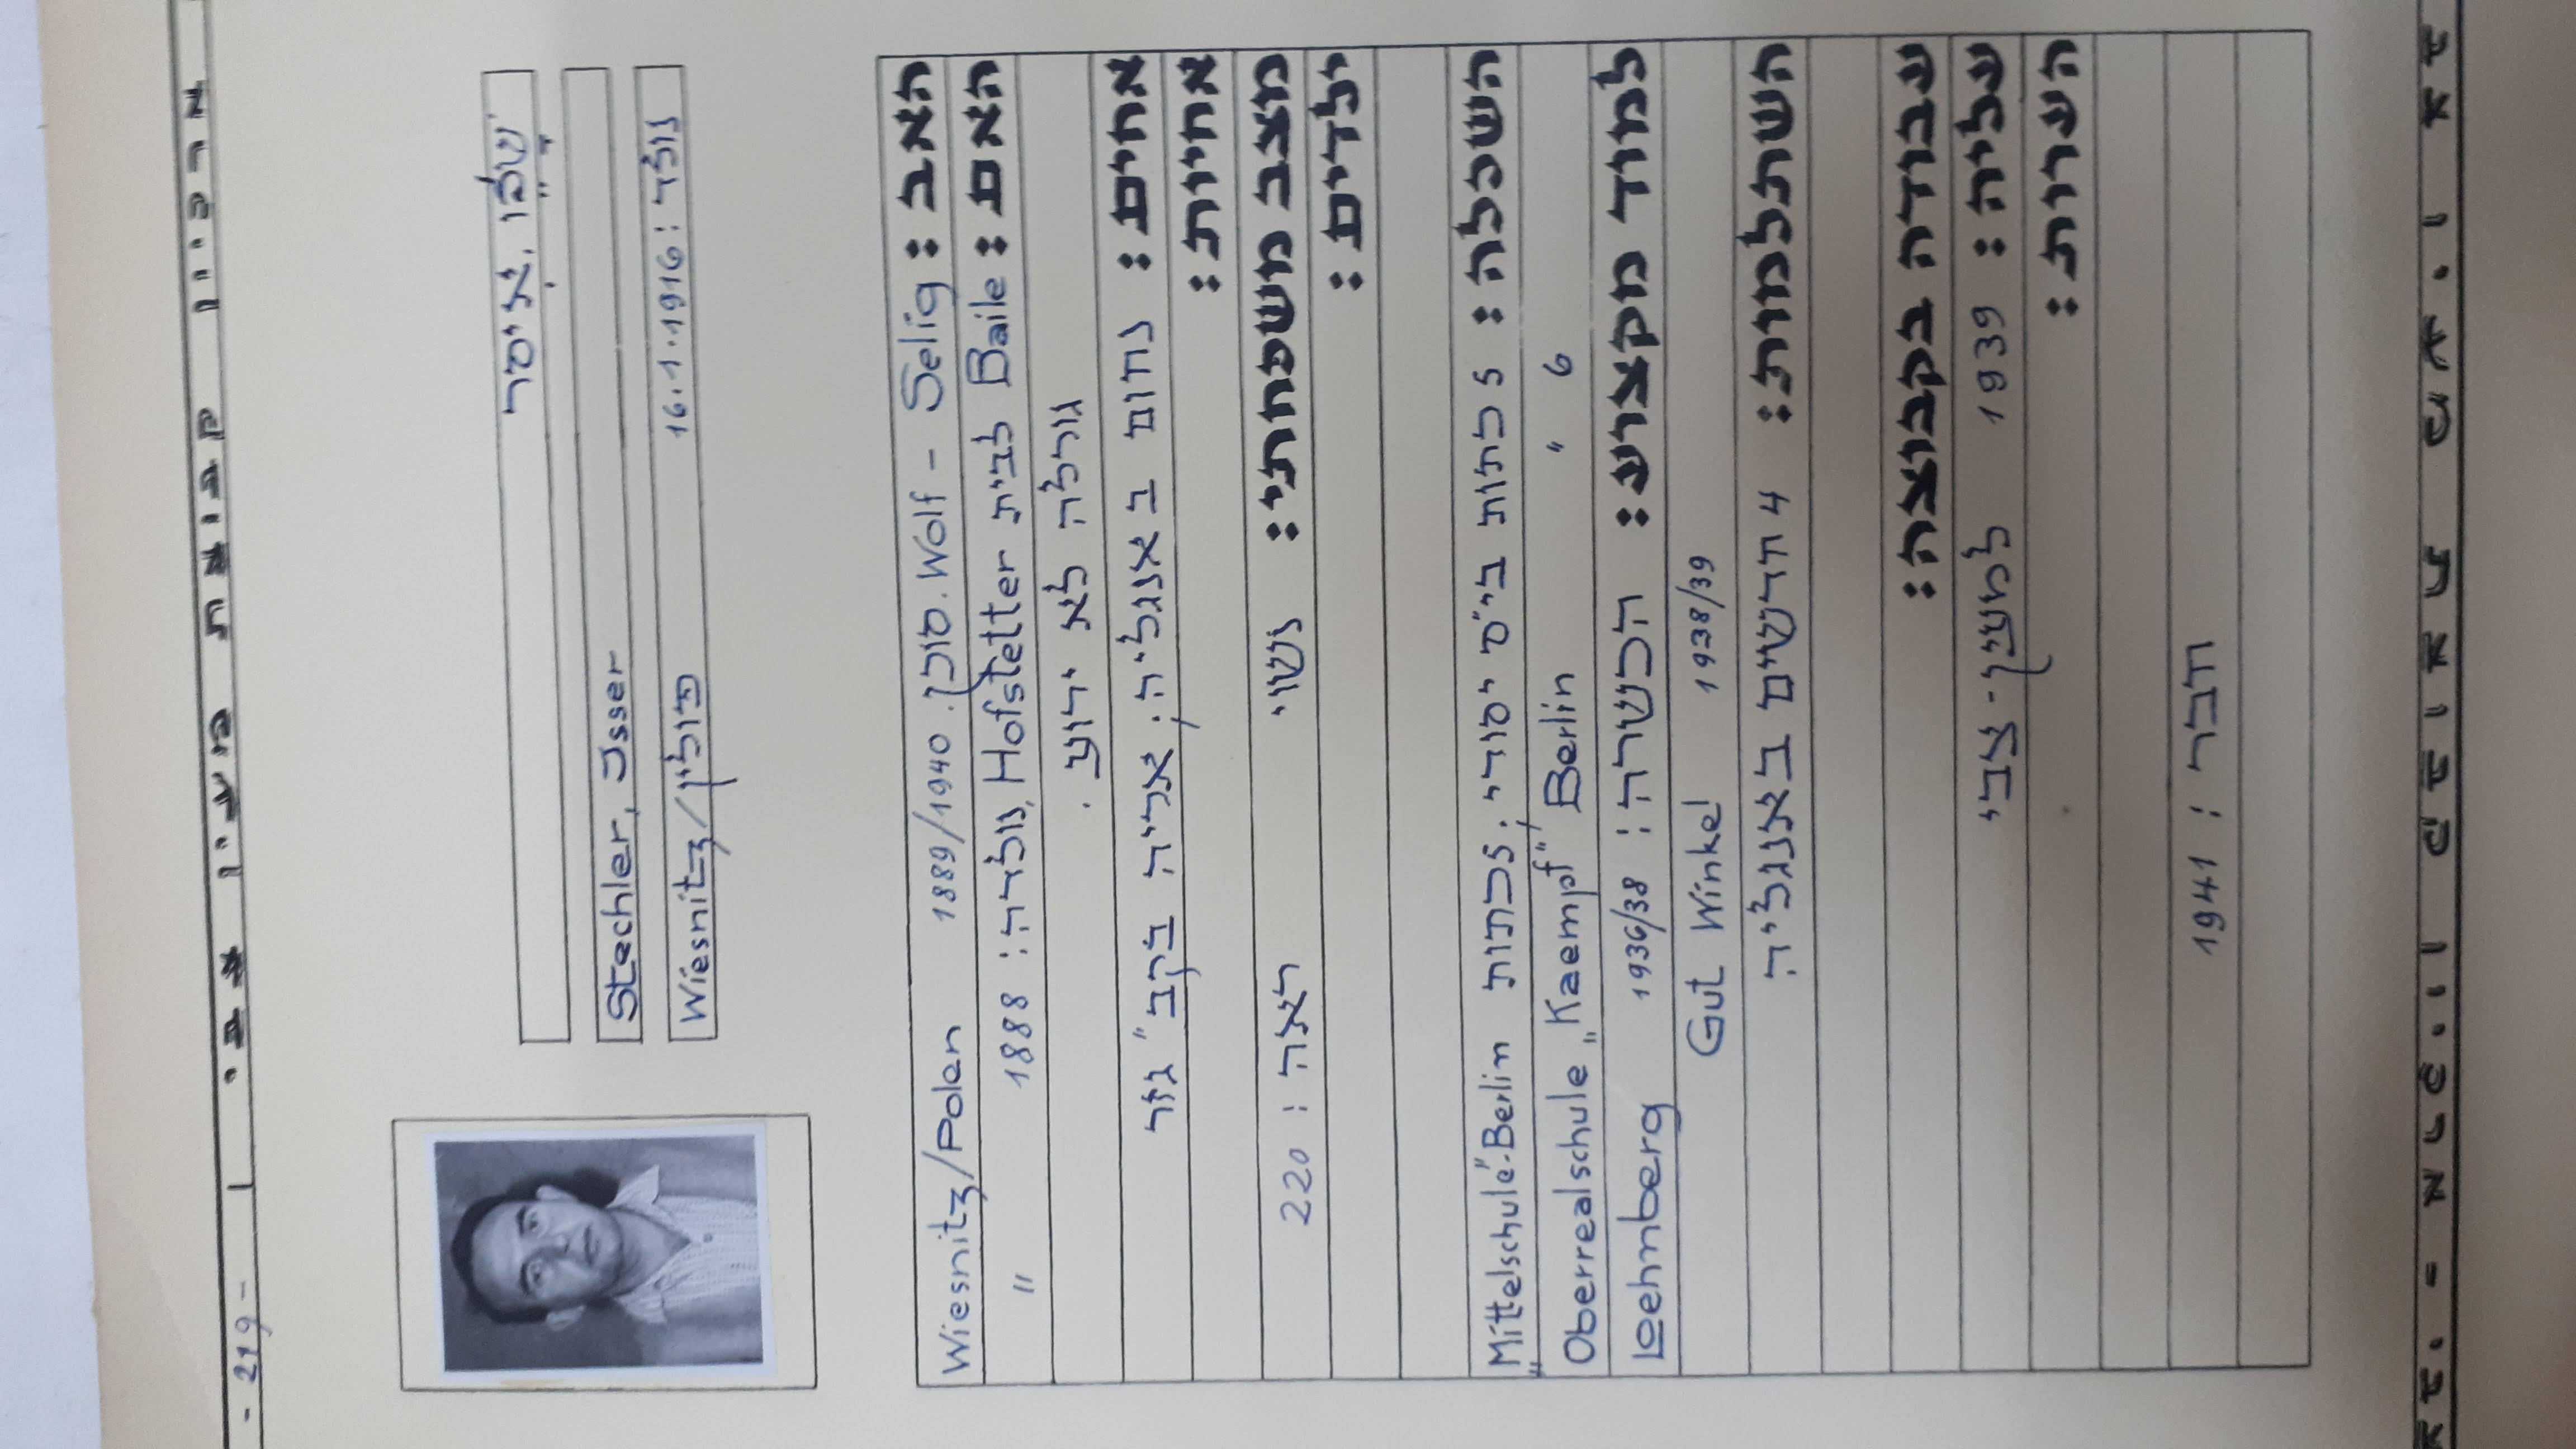 - 219 -
שטכלר, איסר
Stechler, Isser
נולד: 16.1.1916 פולין/Wiesnitz
האב: Wolf - Selig. סוכן. 1889/1940 Wiesnitz/Polen
האם: Baile לבית Hofstetter, נולדה: 1888 "
גורלה לא ידוע.
אחים: נחום באנגליה; אריה בקב' גזר
אחיות:
מצב משפחתי: נשוי ראה: 220
ילדים:
השכלה: 5 כתות בי"ס יסודי; כתות „Mittelschule"-Berlin
6 " Oberrealschule „Kaempf" Berlin
למוד מקצוע: הכשרה: 1936/38 Loehnberg
1938/39 Gut Winkel
השתלמות: 4 חדשים באנגליה
עבודה בקבוצה:
עליה: 1939 למעין-צבי
הערות:
חבר: 1941